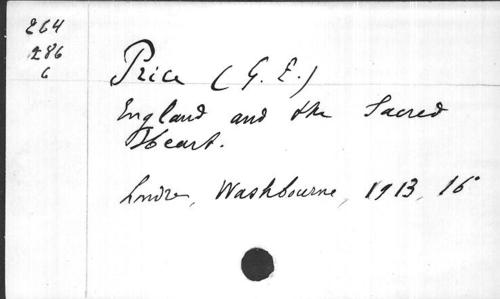 264
286
6
Price (G. E.)
England and the Sacred
Heart.
Londres, Washbourne, 1913, 16°